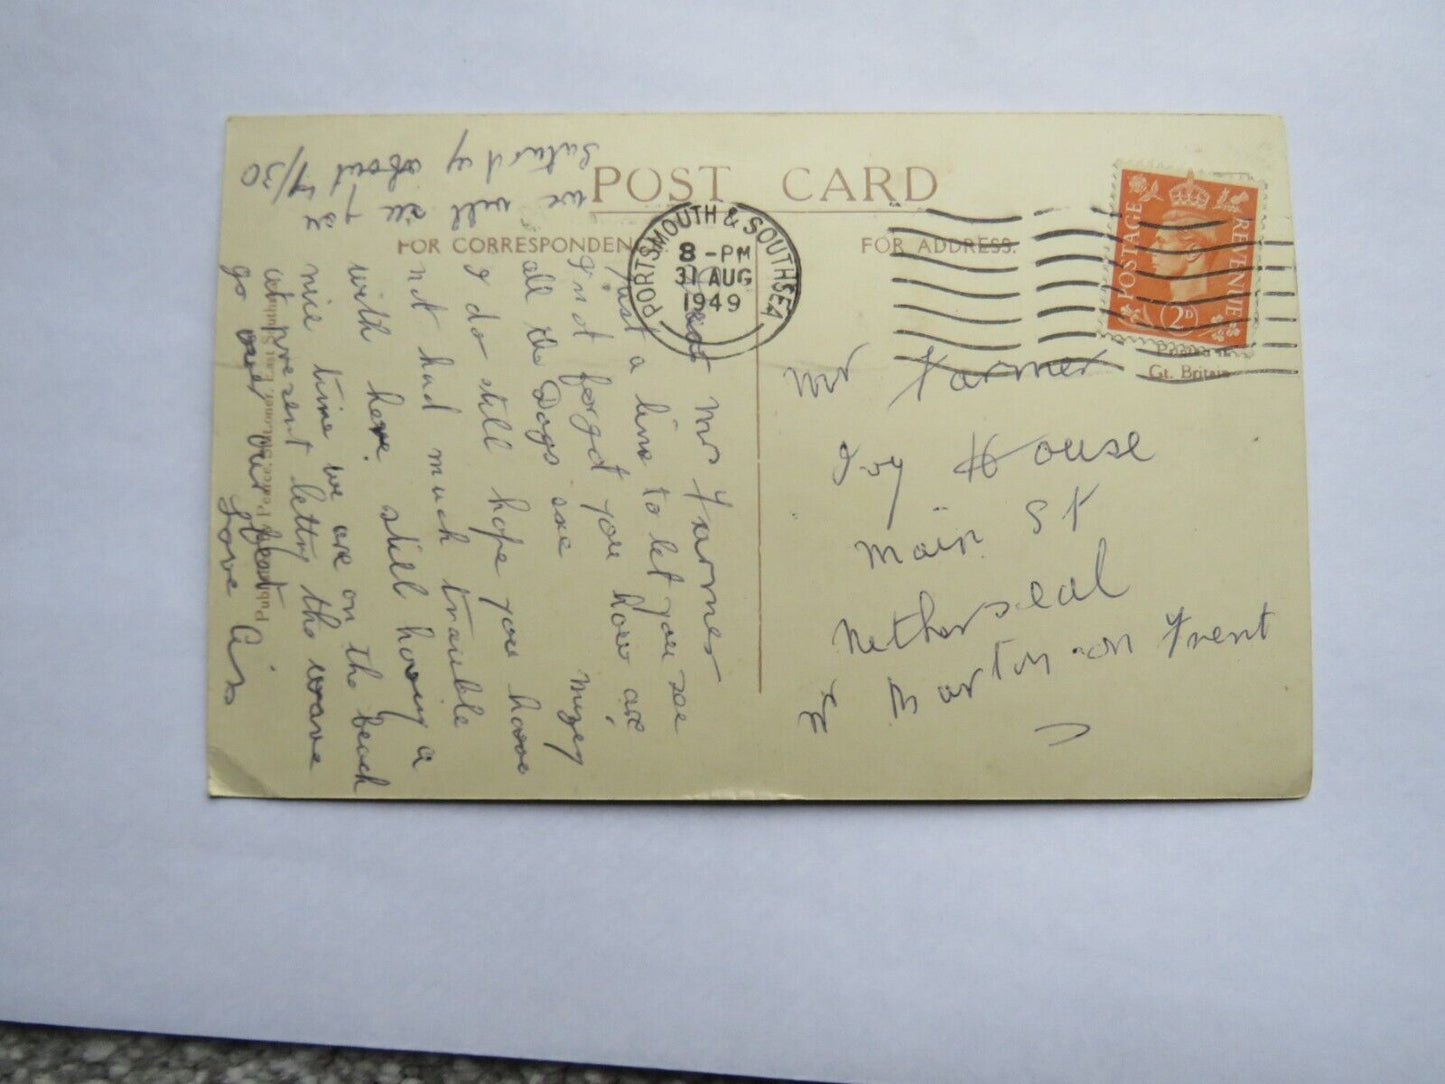 POST CARD
FOR CORRESPONDEN
FOR ADDRESS.
PORTSMOUTH & SOUTHSEA
8-PM
31 AUG
1949
POSTAGE
REVENUE
2D
Printed in
Gt. Britain
Dear Mrs Farmer
Just a line to let you see
I'not forgot you how are
all the Dogs
I do still hope you have
not had much trauble
with here still having a
nice time we are on the beach
at present letting the wave
go over our feat
Love Cis
we will see
about 4/30
Saturdy
Mr Farmer
Ivy House
Main St
Netherseal
Burton-on Trent